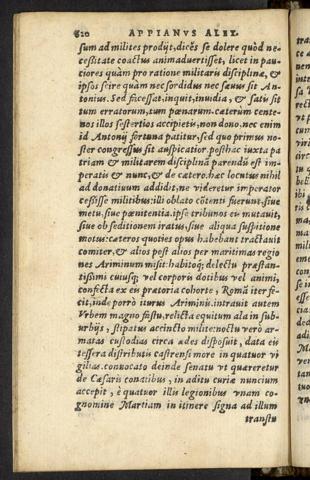 620 APPIANVS ALEX.
sum ad milites prodijt, dicẽs se dolere quòd ne=
cessitate coactus animaduertisset, licet in pau=
ciores quàm pro ratione militaris disciplinæ, &
ipsos scire quàm nec sordidus nec sæuus sit An=
tonius. Sed facessat, inquit, inuidia, & satis sit
tum erratorum, tum pœnarum. cæterum cente=
nos illos sestertios accipietis, non dono. nec enim
id Antonij fortuna patitur, sed quo primus no=
ster congressus sit auspicatior. posthac iuxta pa
triam & militarem disciplinã parendũ est im=
peratis & nunc, & de cætero. hæc locutus nihil
ad donatiuum addidit, ne videretur imperator
cessisse militibus: illi oblato cõtenti fuerunt, siue
metu, siue pœnitentia. ipse tribunos eis mutauit,
siue ob seditionem iratus, siue aliqua suspitione
motus: cæteros quoties opus habebant tractauit
comiter, & alios post alios per maritimas regio
nes Ariminum misit. habitoq; delectu præstan=
tissimi cuiusq; vel corporis dotibus vel animi,
confecta ex eis prætoria cohorte, Romã iter fe=
cit, inde porrò iturus Ariminũ. intrauit autem
Vrbem magno fastu, relicta equitum ala in sub=
urbijs, stipatus accincto milite: noctu verò ar=
matas custodias circa ædes disposuit, data eis
tessera distributis castrensi more in quatuor vi
gilias. conuocato deinde senatu vt quæreretur
de Cæsaris conatibus, in aditu curiæ nuncium
accepit, è quatuor illis legionibus vnam co=
gnomine Martiam in itinere signa ad illum
transtu